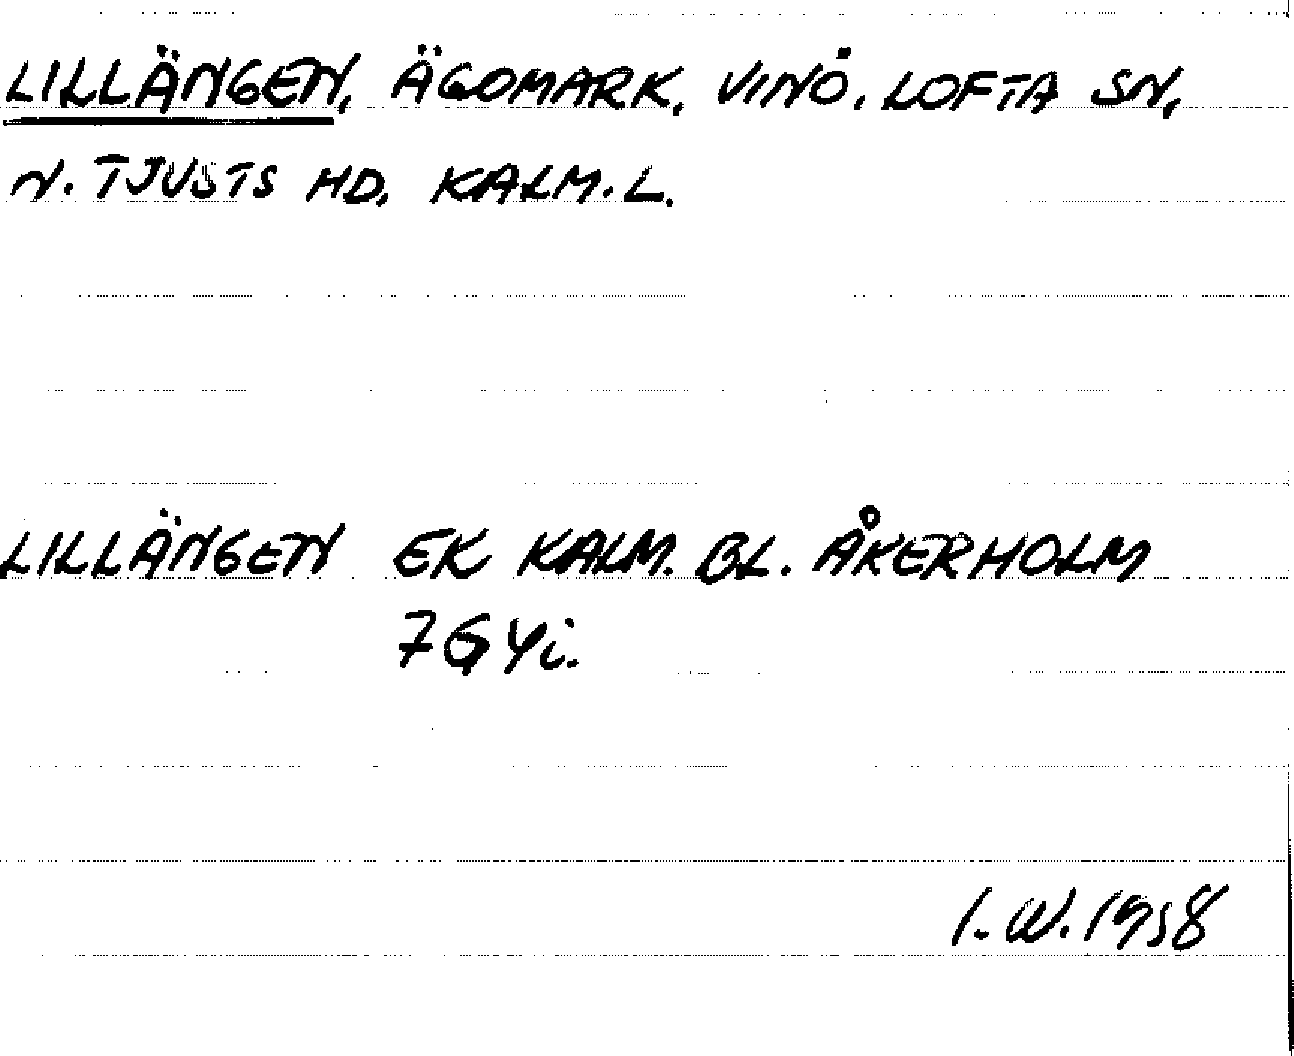 LILLÄNGEN, ÄGOMARK, VINÖ, LOFTA SN,
N. TJUSTS HD, KALM. L.
LILLÄNGEN EK KALM. BL. ÅKERHOLM
7G4i.
I.W. 1958